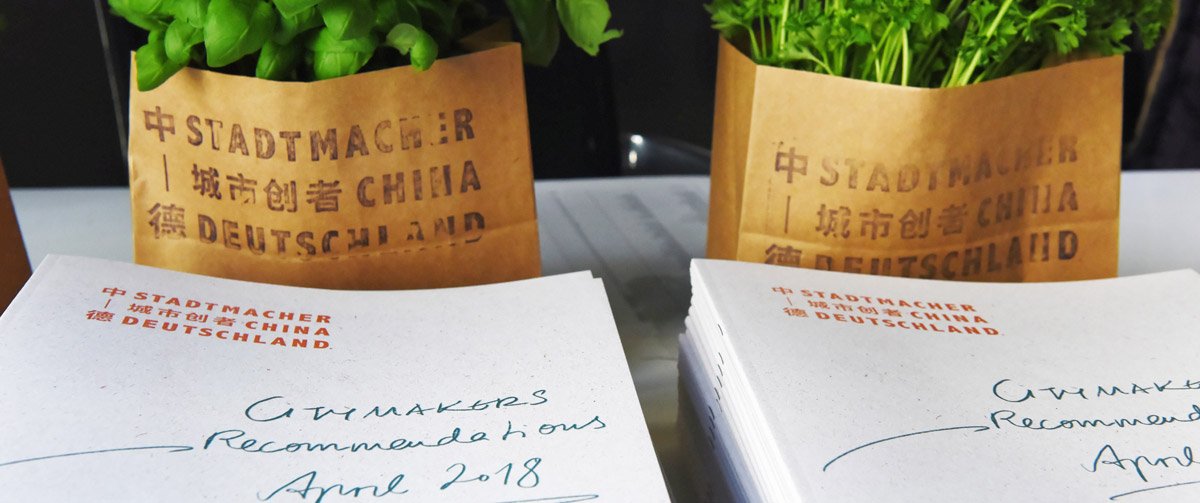 中 STADTMACHER
| 城市创者 CHINA
德 DEUTSCHLAND
中 STADTMACHER
| 城市创者 CHINA
德 DEUTSCHLAND
中 STADTMACHER
| 城市创者 CHINA
德 DEUTSCHLAND
CITYMAKERS
Recommendations
April 2018
中 STADTMACHER
| 城市创者 CHINA
德 DEUTSCHLAND
CITYMAKE
Recommenda
April